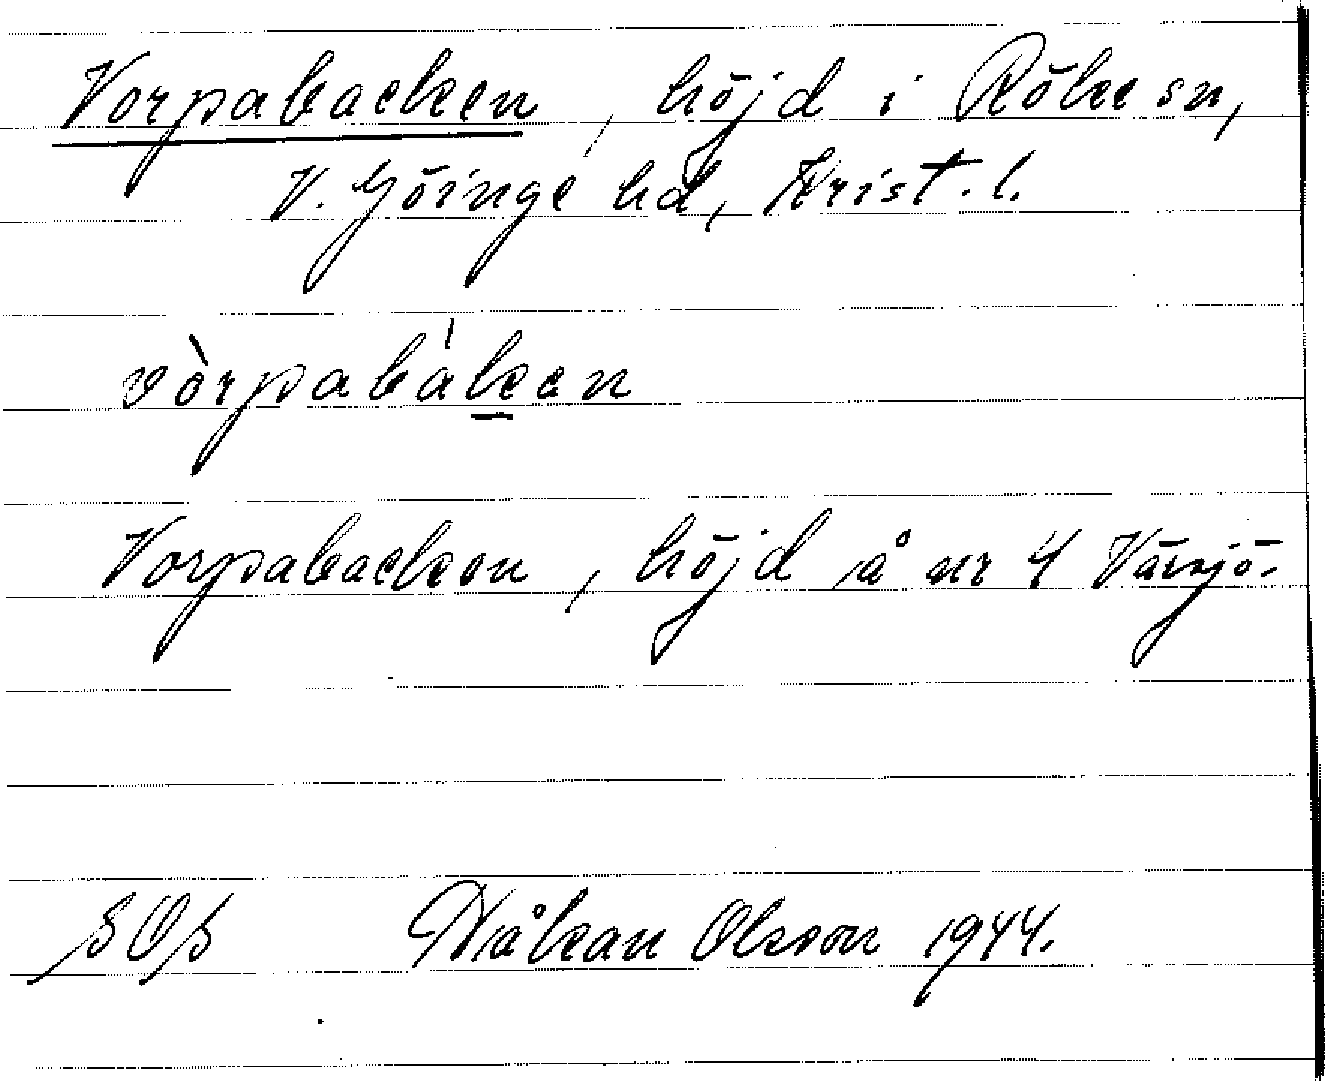 Vorpabacken, höjd i Röke sn,
V. Göinge hd, Krist. l.
vòrpabàken
Vorpabacken, höjd å nr 4 Värsjö.
SOS Håkan Olsson 1944.